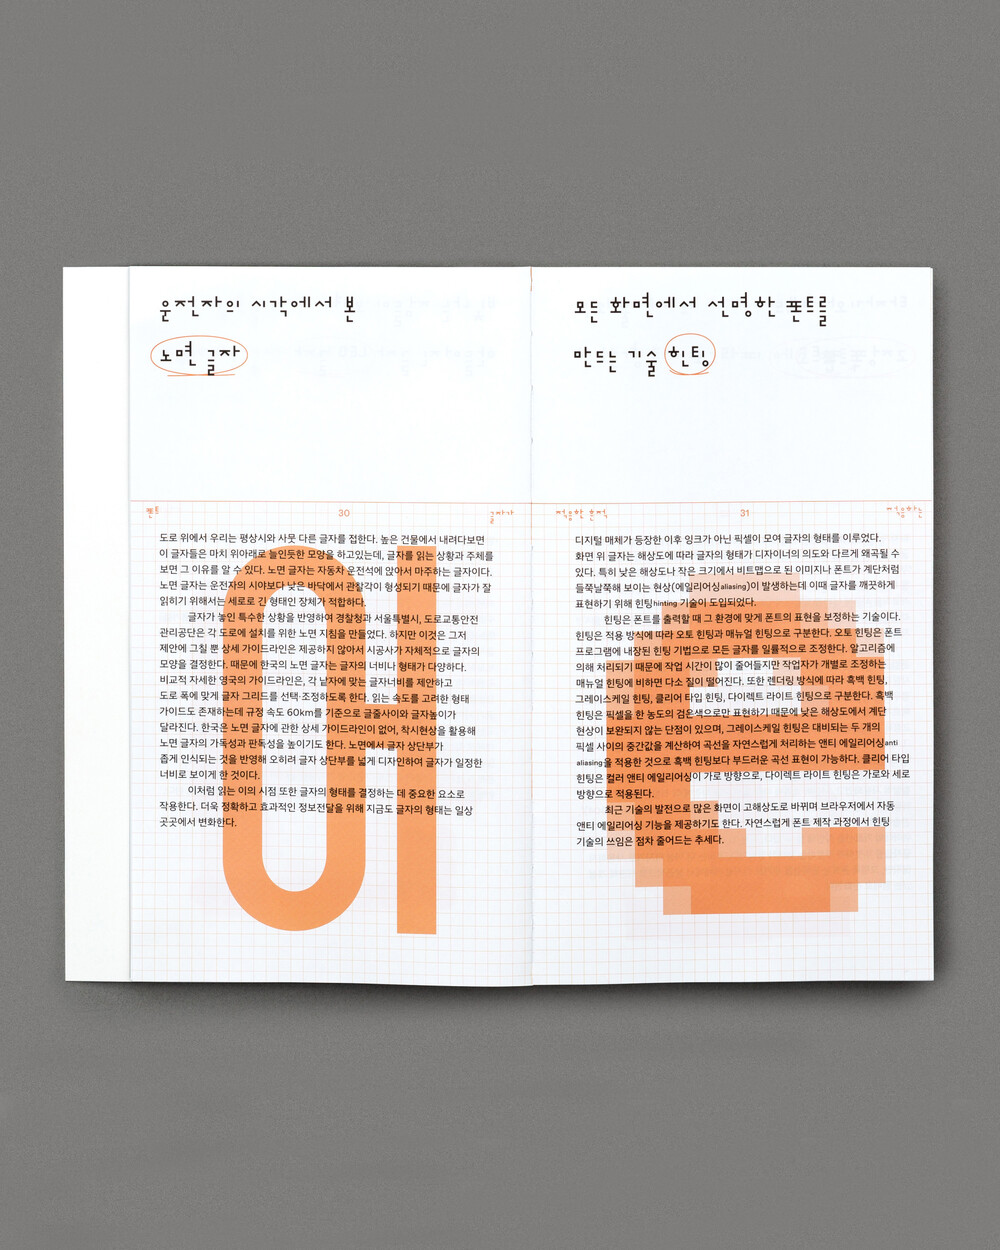 운전자의 시각에서 본
노면 글자
폰트
30
글자가
도로 위에서 우리는 평상시와 사뭇 다른 글자를 접한다. 높은 건물에서 내려다보면
이 글자들은 마치 위아래로 늘인듯한 모양을 하고있는데, 글자를 읽는 상황과 주체를
보면 그 이유를 알 수 있다. 노면 글자는 자동차 운전석에 앉아서 마주하는 글자이다.
노면 글자는 운전자의 시야보다 낮은 바닥에서 관찰각이 형성되기 때문에 글자가 잘
읽히기 위해서는 세로로 긴 형태인 장체가 적합하다.
글자가 놓인 특수한 상황을 반영하여 경찰청과 서울특별시, 도로교통안전
관리공단은 각 도로에 설치를 위한 노면 지침을 만들었다. 하지만 이것은 그저
제안에 그칠 뿐 상세 가이드라인은 제공하지 않아서 시공사가 자체적으로 글자의
모양을 결정한다. 때문에 한국의 노면 글자는 글자의 너비나 형태가 다양하다.
비교적 자세한 영국의 가이드라인은, 각 낱자에 맞는 글자너비를 제안하고
도로 폭에 맞게 글자 그리드를 선택·조정하도록 한다. 읽는 속도를 고려한 형태
가이드도 존재하는데 규정 속도 60km를 기준으로 글줄사이와 글자높이가
달라진다. 한국은 노면 글자에 관한 상세 가이드라인이 없어, 착시현상을 활용해
노면 글자의 가독성과 판독성을 높이기도 한다. 노면에서 글자 상단부가
좁게 인식되는 것을 반영해 오히려 글자 상단부를 넓게 디자인하여 글자가 일정한
너비로 보이게 한 것이다.
이처럼 읽는 이의 시점 또한 글자의 형태를 결정하는 데 중요한 요소로
작용한다. 더욱 정확하고 효과적인 정보전달을 위해 지금도 글자의 형태는 일상
곳곳에서 변화한다.
이
모든 화면에서 선명한 폰트를
만드는 기술 힌팅
적응한 흔적
31
적응하는
디지털 매체가 등장한 이후 잉크가 아닌 픽셀이 모여 글자의 형태를 이루었다.
화면 위 글자는 해상도에 따라 글자의 형태가 디자이너의 의도와 다르게 왜곡될 수
있다. 특히 낮은 해상도나 작은 크기에서 비트맵으로 된 이미지나 폰트가 계단처럼
들쭉날쭉해 보이는 현상(에일리어싱aliasing)이 발생하는데 이때 글자를 깨끗하게
표현하기 위해 힌팅hinting 기술이 도입되었다.
힌팅은 폰트를 출력할 때 그 환경에 맞게 폰트의 표현을 보정하는 기술이다.
힌팅은 적용 방식에 따라 오토 힌팅과 매뉴얼 힌팅으로 구분한다. 오토 힌팅은 폰트
프로그램에 내장된 힌팅 기법으로 모든 글자를 일률적으로 조정한다. 알고리즘에
의해 처리되기 때문에 작업 시간이 많이 줄어들지만 작업자가 개별로 조정하는
매뉴얼 힌팅에 비하면 다소 질이 떨어진다. 또한 렌더링 방식에 따라 흑백 힌팅,
그레이스케일 힌팅, 클리어 타입 힌팅, 다이렉트 라이트 힌팅으로 구분한다. 흑백
힌팅은 픽셀을 한 농도의 검은색으로만 표현하기 때문에 낮은 해상도에서 계단
현상이 보완되지 않는 단점이 있으며, 그레이스케일 힌팅은 대비되는 두 개의
픽셀 사이의 중간값을 계산하여 곡선을 자연스럽게 처리하는 앤티 에일리어싱anti
aliasing을 적용한 것으로 흑백 힌팅보다 부드러운 곡선 표현이 가능하다. 클리어 타입
힌팅은 컬러 앤티 에일리어싱이 가로 방향으로, 다이렉트 라이트 힌팅은 가로와 세로
방향으로 적용된다.
최근 기술의 발전으로 많은 화면이 고해상도로 바뀌며 브라우저에서 자동
앤티 에일리어싱 기능을 제공하기도 한다. 자연스럽게 폰트 제작 과정에서 힌팅
기술의 쓰임은 점차 줄어드는 추세다.